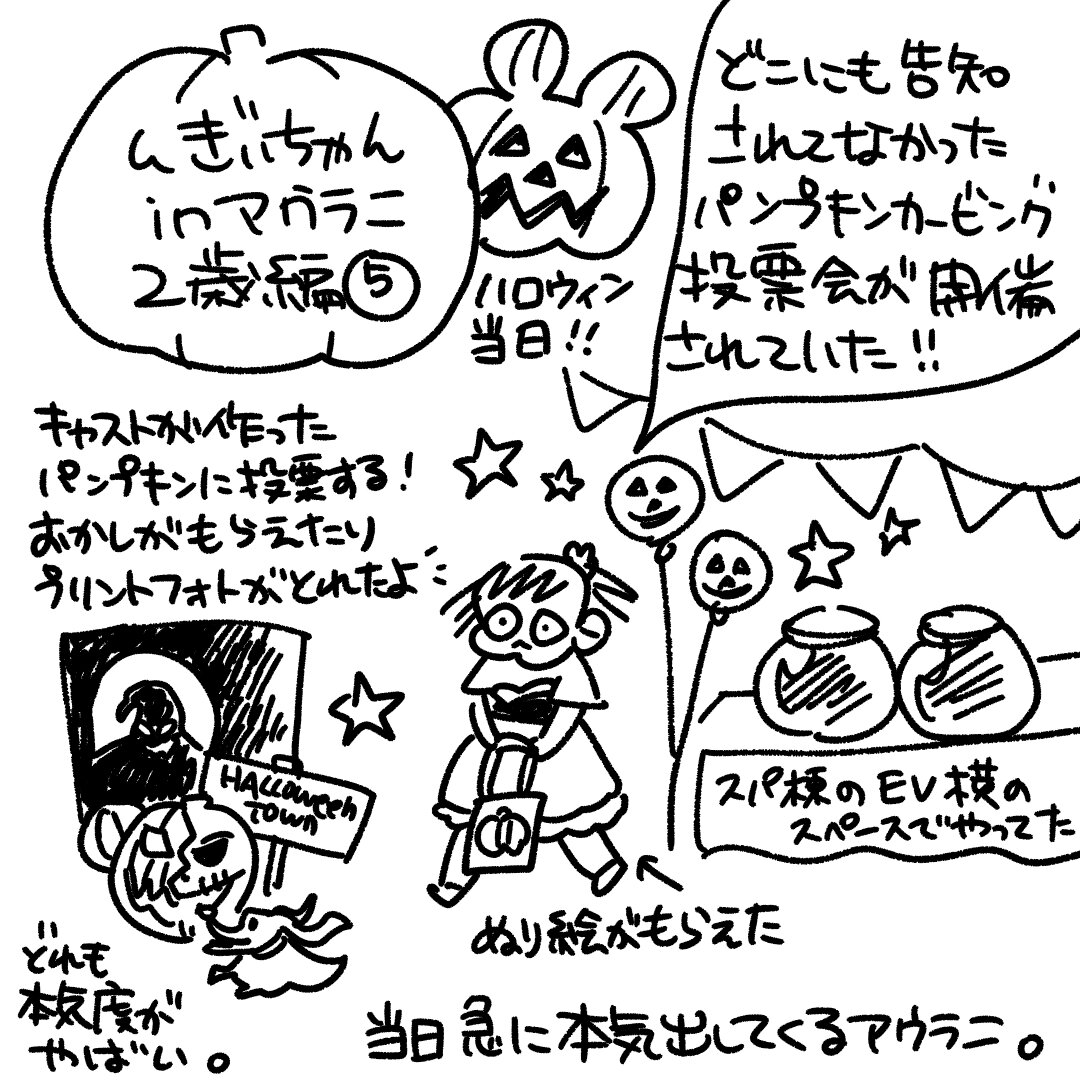 むぎぃちゃん
inアウラニ
2歳編⑤
ハロウィン
当日!!
どこにも告知
されてなかった
パンプキンカービング
投票会が開催
されていた!!
キャストが作った
パンプキンに投票する!
おかしがもらえたり
プリントフォトがとれたよ
HALLOWEEN
TOWN
スパ棟のEV横の
スペースでやってた
ぬり絵がもらえた
どれも
本気度が
やばい。
当日急に本気出してくるアウラニ。